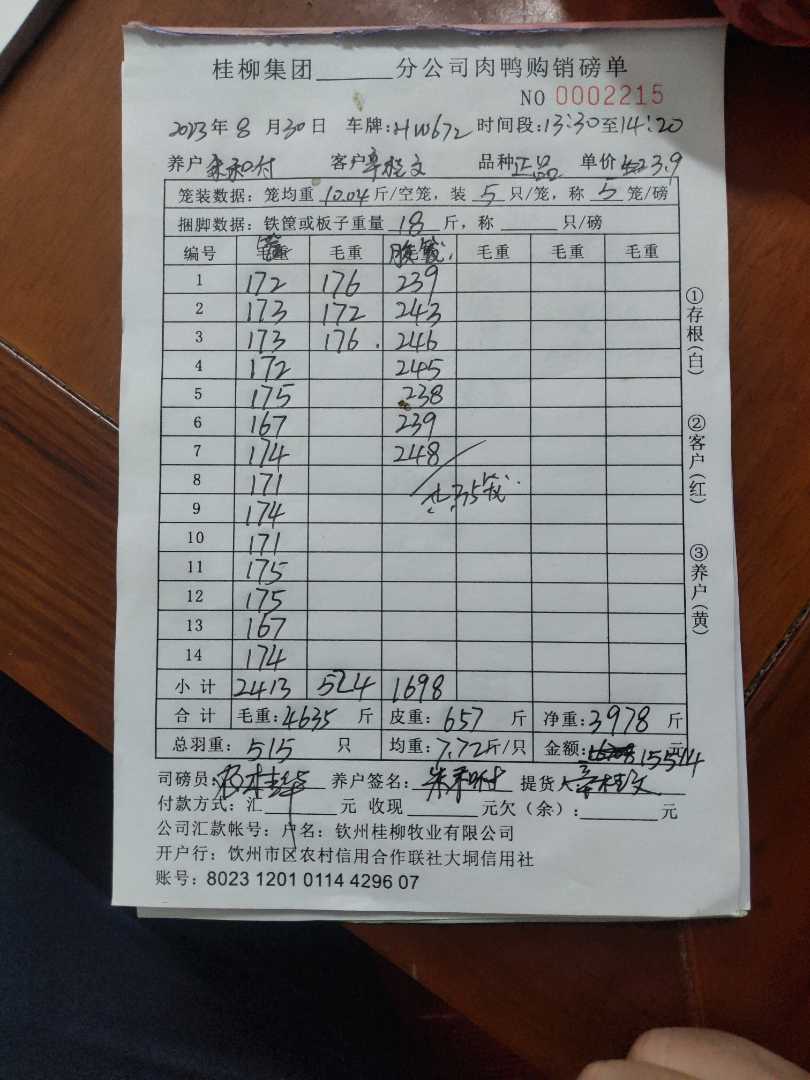 桂柳集团______分公司肉鸭购销磅单
NO 0002215
2023年8月30日 车牌:HW672 时间段:13:30至14:20
养户 客户 文 品种正品 单价3.9
笼装数据：笼均重10.04斤/空笼，装5只/笼，称5笼/磅
捆脚数据：铁筐或板子重量18斤，称______只/磅
编号 毛重 毛重 毛重 毛重 毛重 毛重
1 172 176 239
2 173 172 243
3 173 176. 246
4 172 245
5 175 238
6 167 239
7 174 248
8 171
共35笼.
9 174
10 171
11 175
12 175
13 167
14 174
小计 2413 524 1698
合计 毛重:4635斤 皮重:657斤 净重:3978斤
总羽重:515只 均重:7.72斤/只 金额:15514元
司磅员: 养户签名: 提货人
付款方式：汇______元 收现______元欠（余）:______元
公司汇款帐号：户名：钦州桂柳牧业有限公司
开户行：饮州市区农村信用合作联社大垌信用社
账号：8023 1201 0114 4296 07
①存根(白)
②客户(红)
③养户(黄)